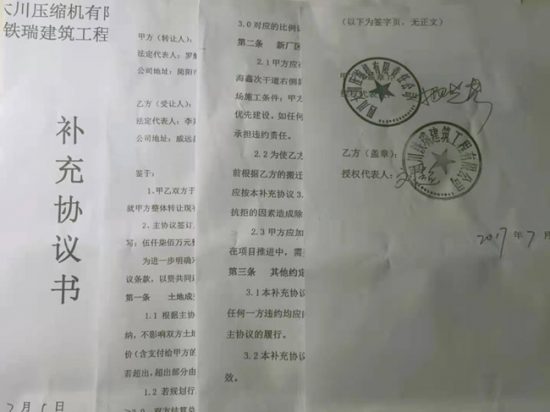 大川压缩机有限
铁瑞建筑工程
补充协议书
甲方（转让人）：
法定代表人：罗
公司地址：简阳市
乙方（受让人）：
法定代表人：李
公司地址：威远县
鉴于：
1.甲乙双方于
就甲方整体转让现有
2.主协议签订
写：伍仟柒佰万元整
为进一步明确
议条款，以资共同遵
第一条 土地成交
1.1 根据主协
纳，不影响双方土地
价（含支付给甲方的
若超出，超出部分由
1.2 若规划行
3.0 对应的比例
第二条 新厂区
2.1 甲方应
海鑫次干道右侧
场施工条件；甲方
优先建设，如任何
承担违约责任。
2.2 为使乙方
前根据乙方的搬迁
应按本补充协议 3.
抗拒的因素造成除
2.3 甲方应加
在项目推进中，需
第三条 其他约定
3.1 本补充协议
任何一方违约均应向
主协议的履行。
3.2 本补充协议
效。
（以下为签字页，无正文）
四川大川压缩机有限责任公司
乙方（盖章）：
授权代表人：
建筑工程有限公司
2017 年 7 月